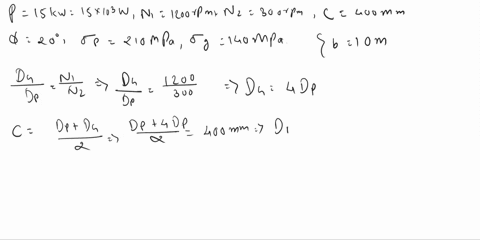 P = 15 kw = 15 × 10³ W, N₁ = 1200 rpm, N₂ = 300 rpm, C = 400 mm
φ = 20°, σp = 210 MPa, σg = 140 MPa } b = 10 m
DG/Dp = N₁/N₂ => DG/Dp = 1200/300 => DG = 4 Dp
C = (Dp + DG)/2 => (Dp + 4Dp)/2 = 400 mm => D